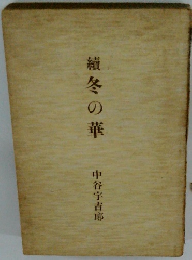 續冬の華
中谷宇吉郎